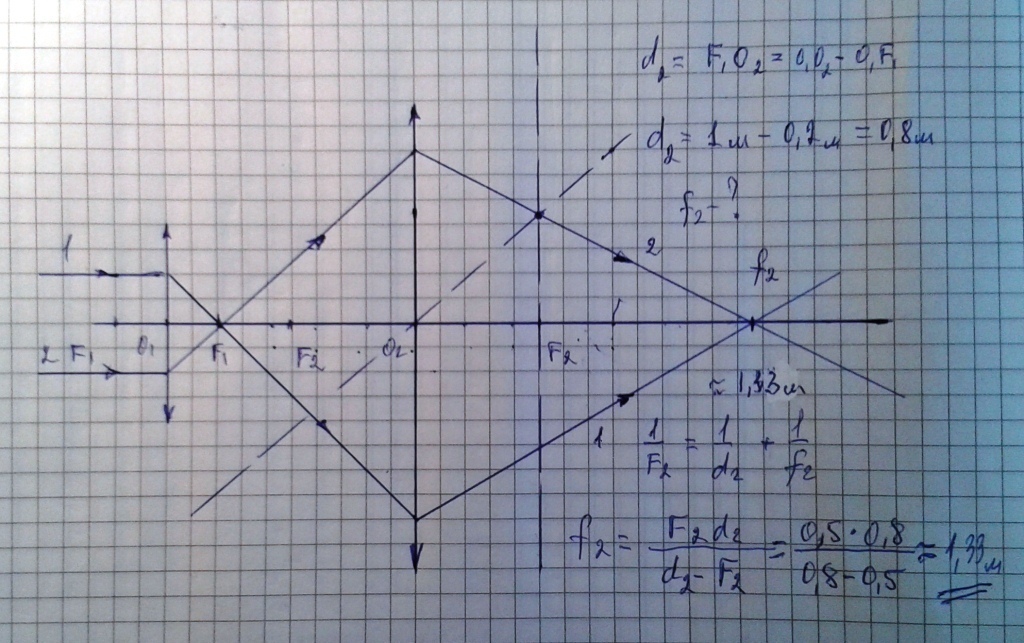 d₂ = F₁O₂ = O₁O₂ - O₁F₁
d₂ = 1 м - 0,2 м = 0,8 м
f₂ - ?
1
2
f₂
2 F₁ O₁ F₁ F₂ O₂ F₂
≈ 1,33 м
1
1/F₂ = 1/d₂ + 1/f₂
f₂ = F₂ d₂ / (d₂ - F₂) = 0,5 · 0,8 / (0,8 - 0,5) ≈ 1,33 м